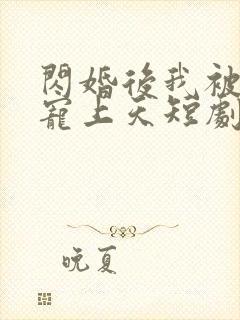 閃婚後我被
寵上天短劇
晚夏